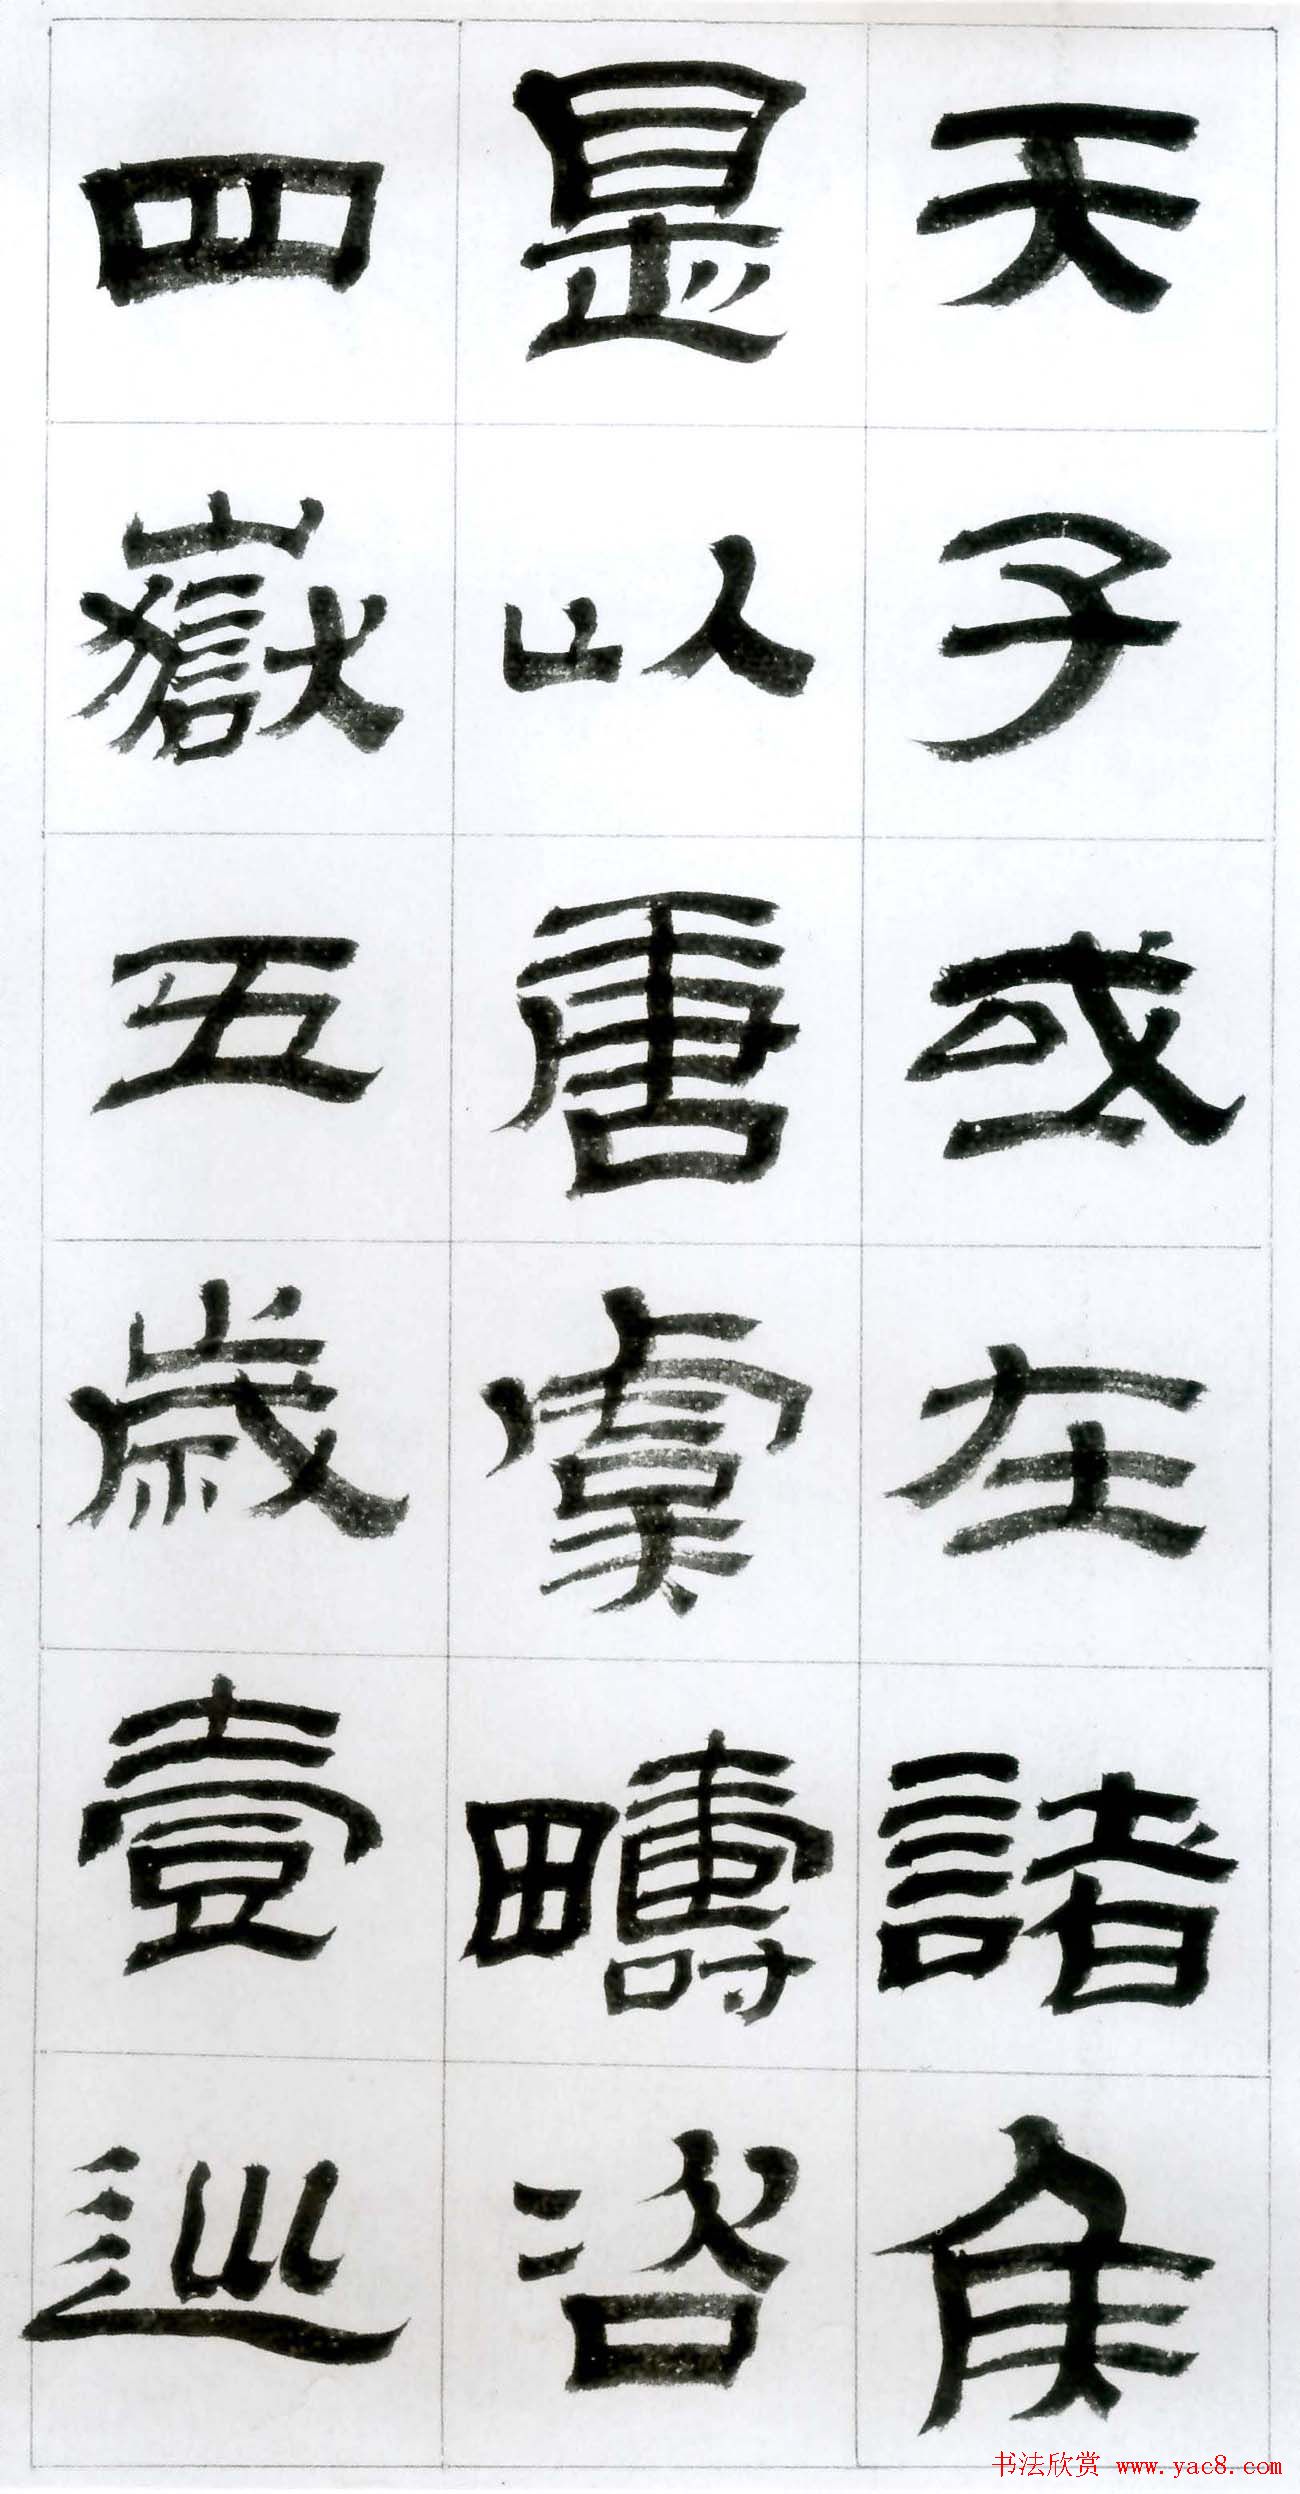 天子或在諸侯
是以唐虞疇咨
四嶽五歲壹巡
书法欣赏 www.yac8.com